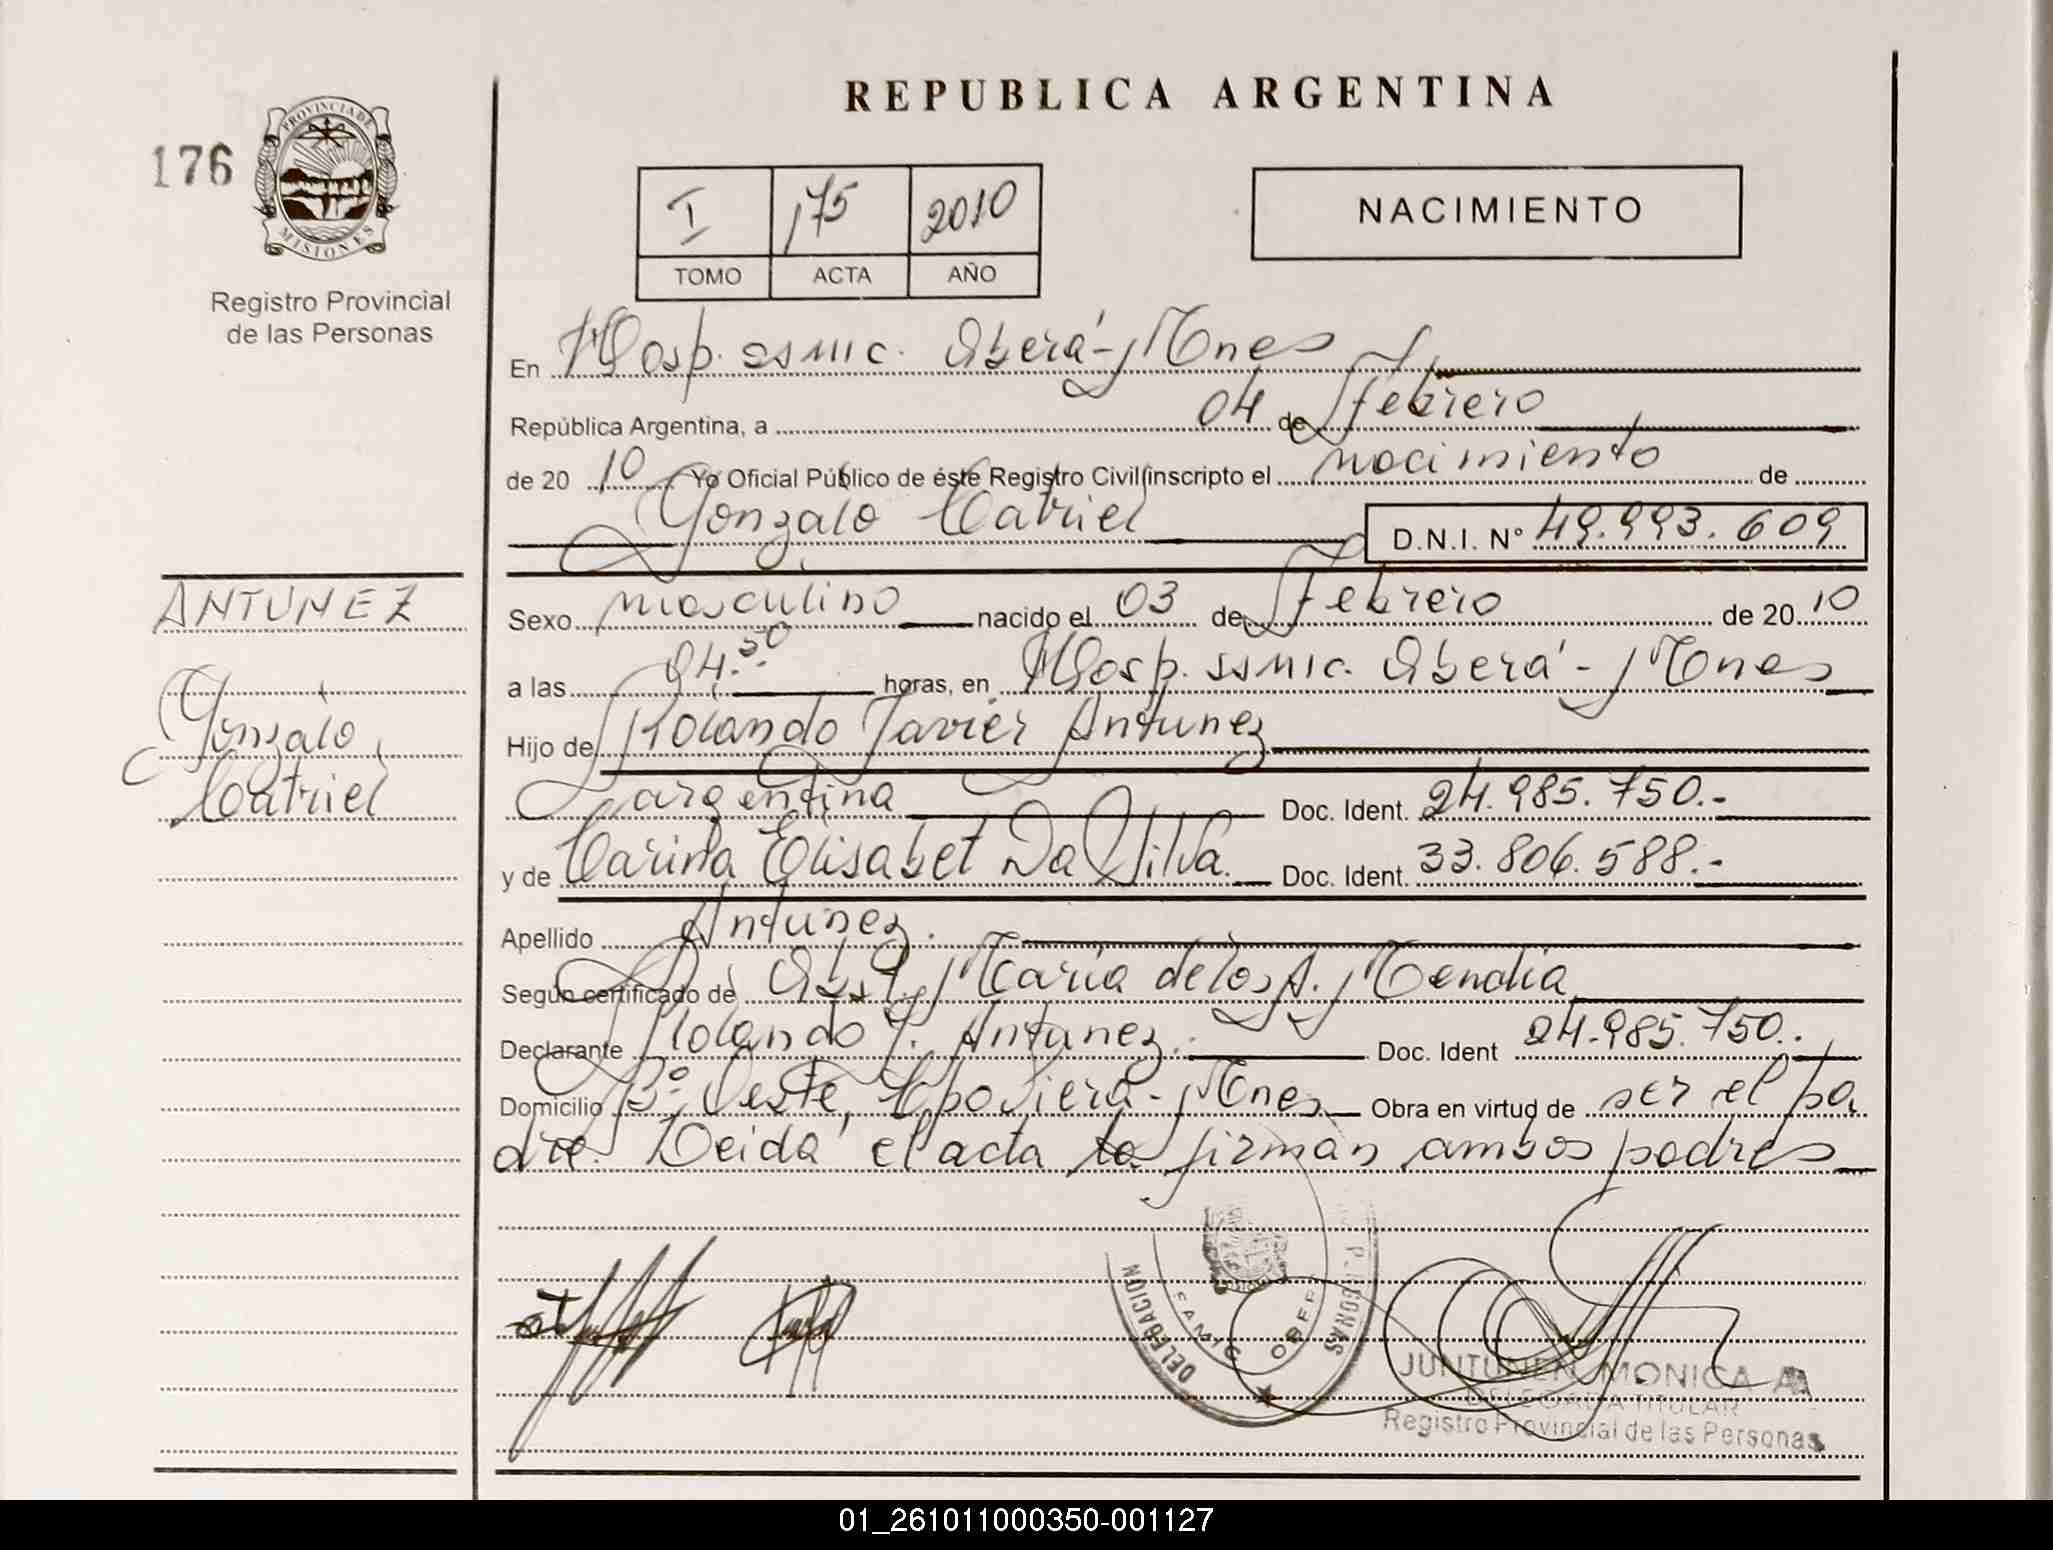 REPUBLICA ARGENTINA
176
PROVINCIA DE
MISIONES
Registro Provincial
de las Personas
I 175 2010
TOMO ACTA AÑO
NACIMIENTO
En Hosp. SSMIC. Oberá - Mnes
República Argentina, a 04 de Febrero
de 20 10 Yo Oficial Público de éste Registro Civil inscripto el nacimiento de
Gonzalo Catriel D.N.I. Nº 49.993.609
ANTUNEZ
Gonzalo
Catriel
Sexo masculino nacido el 03 de Febrero de 20 10
a las horas, en Hosp. SSMIC. Oberá - Mnes
Hijo de Rolando Javier Antunez
argentina Doc. Ident. 24.985.750.-
y de Carina Elisabet Da Silva. Doc. Ident. 33.806.588.-
Apellido Antunez.
Según certificado de Obst. Maria de los A.
Declarante Rolando J. Antunez. Doc. Ident 24.985.750.
Domicilio Bº Oeste, Mnes Obra en virtud de ser el pa
dre. Leida el acta la firman ambos padres
DELEGACION
SAMIC OBERA
PERSONAS
JUNTUNEN MONICA A
DELEGADA TITULAR
Registro Provincial de las Personas
01_261011000350-001127